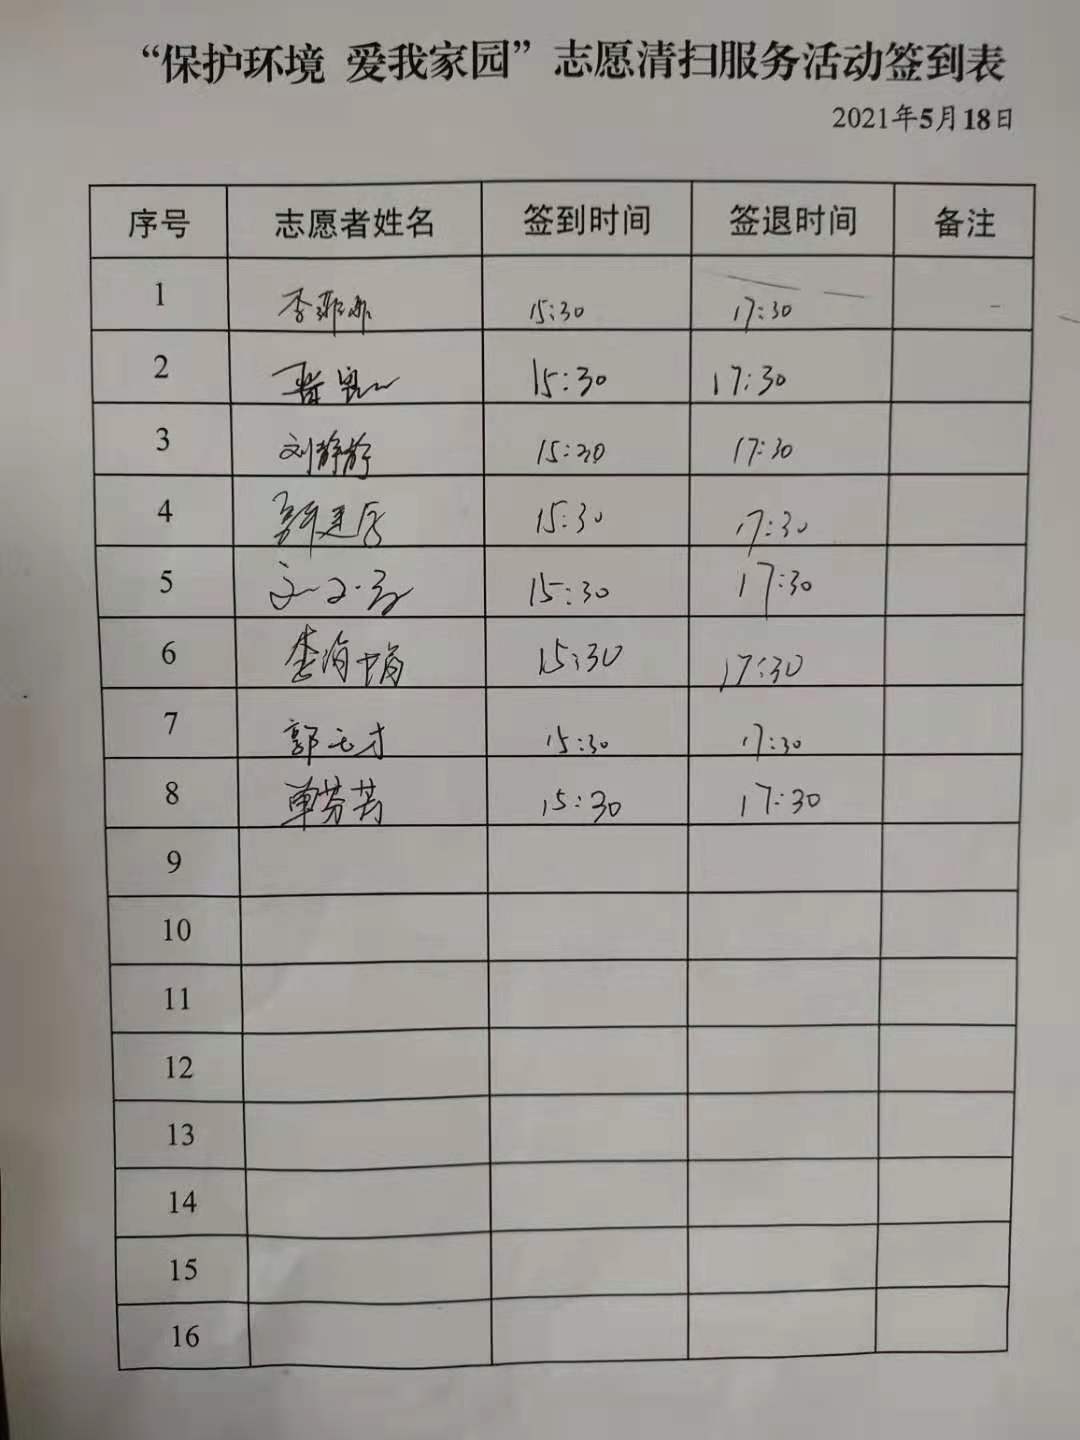 “保护环境 爱我家园”志愿清扫服务活动签到表
2021年5月18日
序号 志愿者姓名 签到时间 签退时间 备注
1 李菲菲 15:30 17:30
2 15:30 17:30
3 刘静静 15:30 17:30
4 15:30 17:30
5 15:30 17:30
6 15:30 17:30
7 15:30 17:30
8 单芬芳 15:30 17:30
9
10
11
12
13
14
15
16